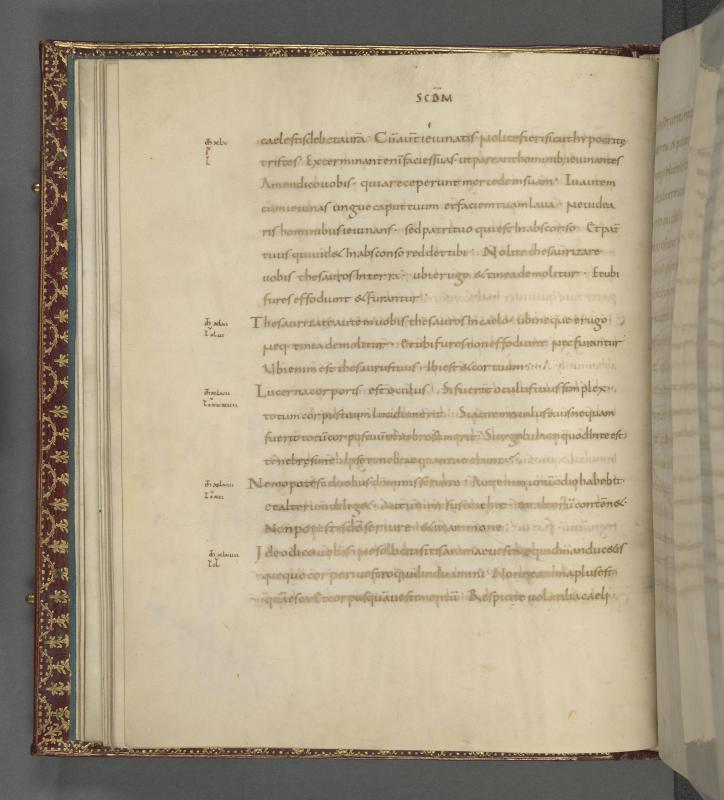 SCDM
caelestis debet aura · Cū aūt ieiunatis nolite fieri sicut hypocritę
tristes · Exterminant enī facies suas · ut pareant hominibus ieiunantes
Amen dico uobis · quia receperunt mercedem suam · Tu autem
cum ieiunas ungue caput tuum et faciem tuam laua · Ne uidea
ris hominibus ieiunans · sed patri tuo qui est In absconso · Et pat̄
tuus qui uidet In absconso reddet tibi · Nolite thesaurizare
uobis thesauros In terra · ubi erugo & tinea demolitur · Et ubi
fures effodiunt & furantur ·
Thesaurizate autem uobis thesauros In caelo · ubi neque erugo
neq· tinea demolitur · et ubi fures non effodiunt nec furantur
Ubi enim est thesaurus tuus Ibi est & cor tuum
Lucerna corporis est oculus · Si fuerit oculus tuus simplex ·
totum corpus tuum lucidum erit · Si autem oculus tuus nequam
fuerit totū corpus tuū tenebrosum erit · Si ergo lumen quod In te est
tenebre sunt Ipse tenebrae quante erunt
Nemo potest duobus dominis seruire · Aut enim unū odio habebit
et alterum diliget · Aut unum sustinebit et alterū contēn&·
Non potestis dō seruire & mammone
Ideo dico uobis · Ne solliciti sitis animae uestrae quid manducetis
neque corpori uestro quid induamini · Nonne anima plus est
quā esca · Et corpus quā uestimentū · Respicite uolatilia caeli